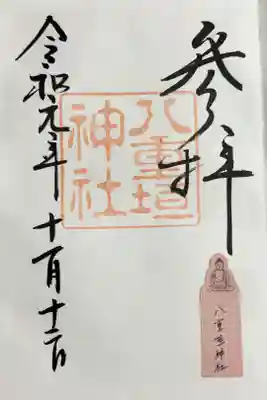 参拝
八重垣
神社
令和元年 十一月十二日
八重垣神社